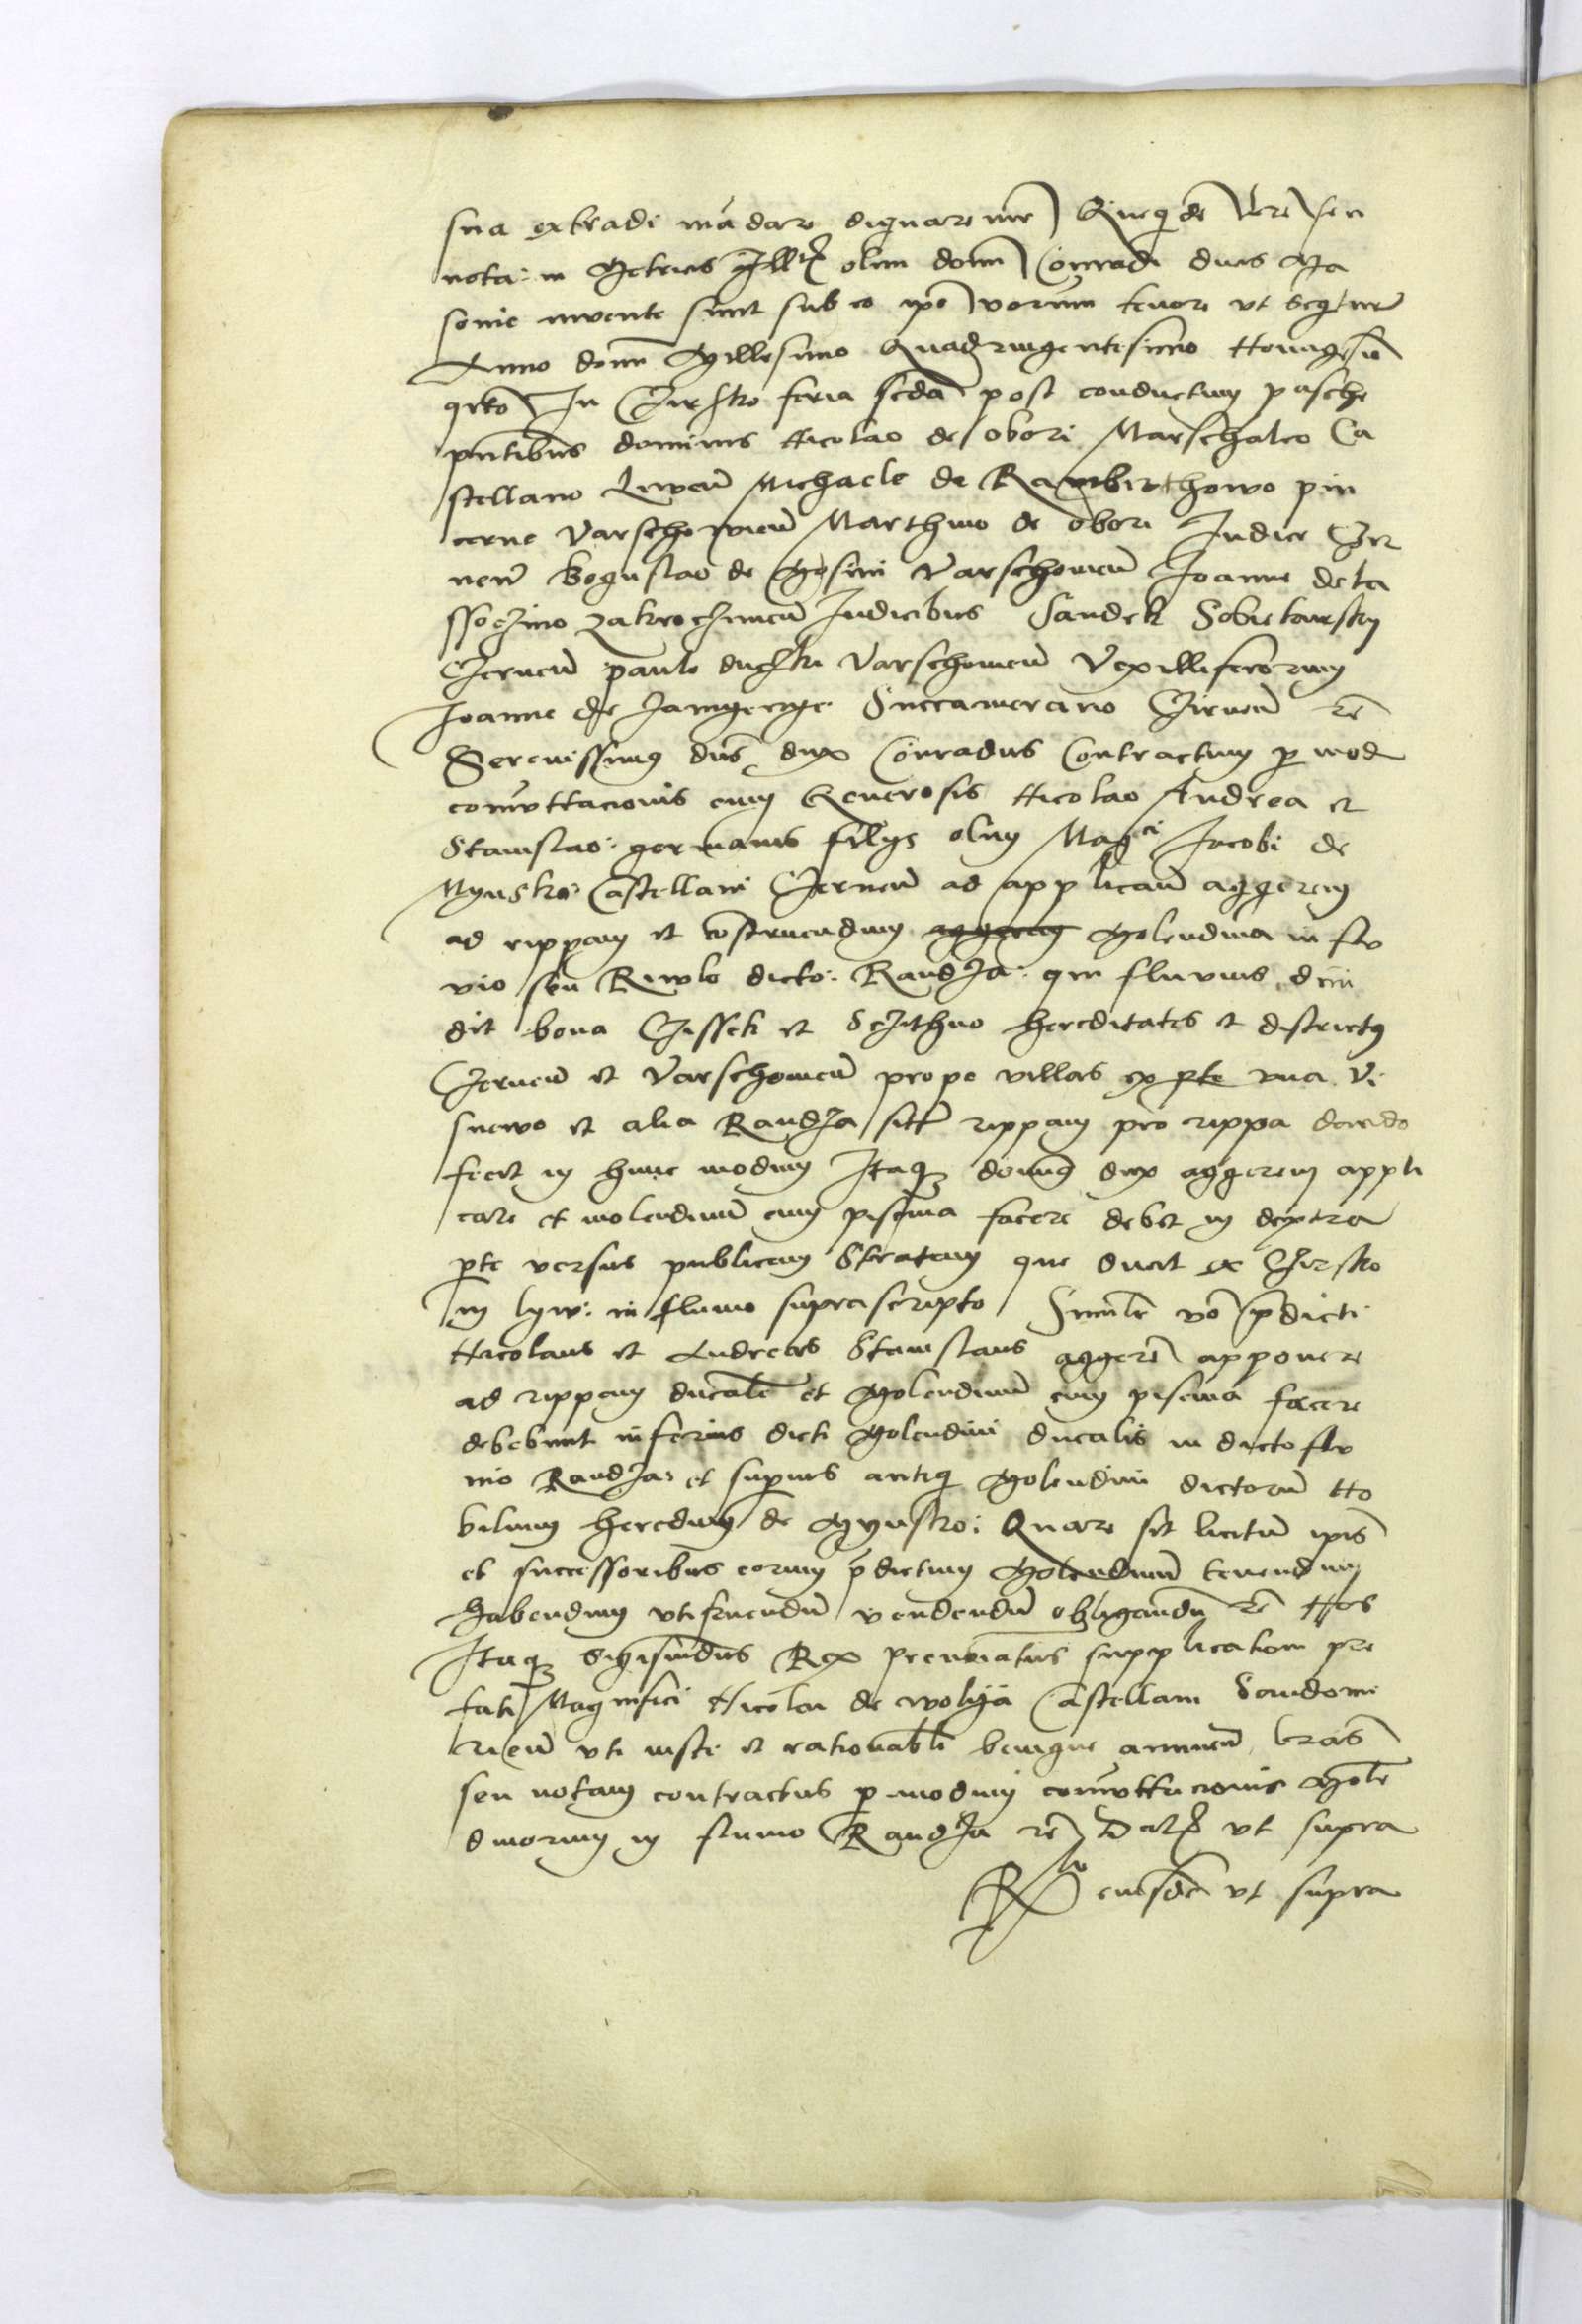 sua extradi mādare dignaremr Queq̄dē lr̄e seu
nota: in Metrics Illꝰ olim domī Conradi ducis Ma
sovie invente sunt sub eo ip̄o vorum tenore ut sequr
Anno domī Millesimo Quadringentesimo Nonagesīo
q̄rto In Czirsko feria scda post conductum pasche
pn̄tibus dominis Nicolao de Obori Marschalco Ca
stellano Liveñ Michaele de Ramberthowo pin
cerne Varschovieñ Marthino de Obori Iudice Czer
neñ Boguslao de Mesini Varschovieñ Joanne de la
ssoczino zakroczimeñ Iudicibus Sandek Sobiekursky
Czerneñ paulo duczki Varschovieñ Vexilliferorum
Joanne de Jamgenyge Succamerario Czirneñ rē
Serenissimꝰ dn̄s dux Conradus Contractum p mod
comuttacionis cum Generosis Nicolao Andrea et
Stanislao: germanis filys olim Magci Jacobi de
Mynsko: Castellani Czerneñ ad applicañ aggerem
ad rippam et cōstruendum aggerem Molendina in flu
vio seu Rivulo dicto: Randza: qui fluvius divi
dit bona Cisseki et Sczithno hereditates et districtꝰ
Czerneñ et Varschovieñ prope villas ex pte una Vi
snewo et alia Randza sittr̄ rippam pro rippa dando
fecit in hunc modum Itaqꝫ domīꝰ dux aggerem appli
care et molendinū cum piscina facere debet in dextra
pte versus publicam Stratam que ducit ex Czirsko
in lyw: in fluvio suprascripto Similr̄ vō p̄dicti
Nicolaus et Andreas Stanislaus aggerē apponere
ad rippam ducalē et Molendinū cum piscina facere
debebunt inferius dicti Molendini ducalis in dicto flu
vio Randza: et supius antiq Molendini dictorū No
bilium heredum de Mynsko: Quare sit licitū ipīs
et successoribus eorum p̄dictum Molendinū tenendum
habendum utifruendū vendendū obligandū rē Nos
Itaqꝫ Sigismūdus Rex prenoīatus supplicationi pre
fati Magnifici Nicolai de wolya Castellani Sandomi
rieñ uti iuste et rationabli benigne annueñ lr̄as
seu notam contractus p modum comuttacionis Mole
dinorum in fluvio Randza rē Datꝫ ut supra
Rlō eiusdē ut supra